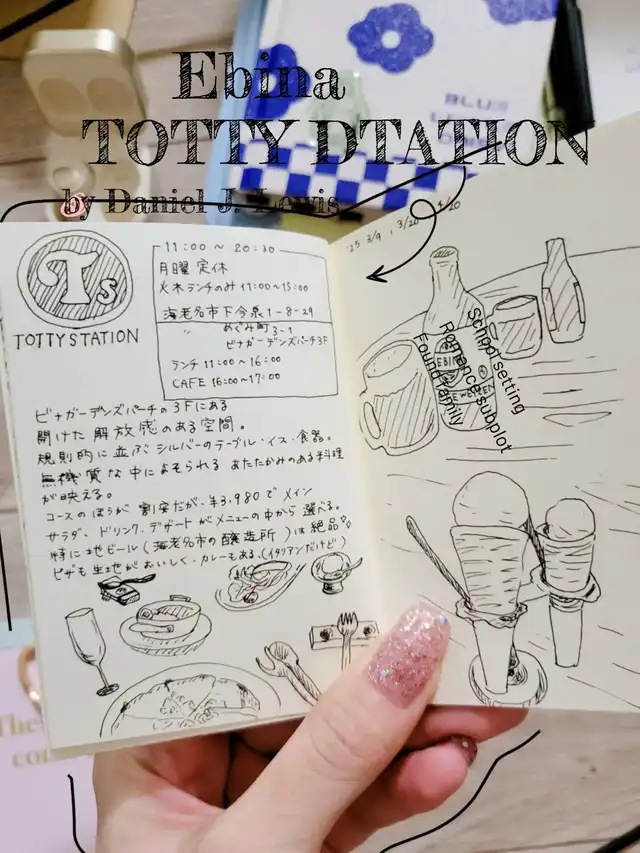 Ebina
TOTTY DTATION
by Daniel J. Lewis
BLUE
'25 3/9 , 3/20 , 4/20
Ts
TOTTY STATION
11:00 ~ 20:30
月曜 定休
火木ランチのみ 11:00~15:00
海老名市下今泉1-8-29
〃 めぐみ町3-1
ビナガーデンズパーチ3F
ランチ 11:00~16:00
CAFE 16:00~17:00
ビナガーデンズパーチの3Fにある
開けた解放感のある空間。
規則的に並ぶシルバーのテーブル・イス・食器。
無機質な中によそられる あたたかみのある料理
が映える。
コースのほうが 割安だが、¥3,980で メイン
サラダ、ドリンク、デザートがメニューの中から選べる。
特に地ビール(海老名市の醸造所)は絶品
ピザも生地がおいしく、カレーもある。(イタリアンだけど)
EBINA
WEIZEN
School setting
Romance subplot
Found family
The